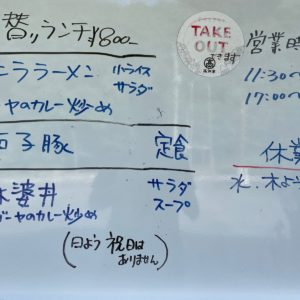 替りランチ¥800-
TAKE
OUT
できます
営業時
ニララーメン
小ライス
サラダ
11:30〜
17:00〜
ヤのカレー炒め
子豚
定食
休業
婆丼
サラダ
スープ
ーヤのカレー炒め
水、木よう
(日よう祝日は
ありません)